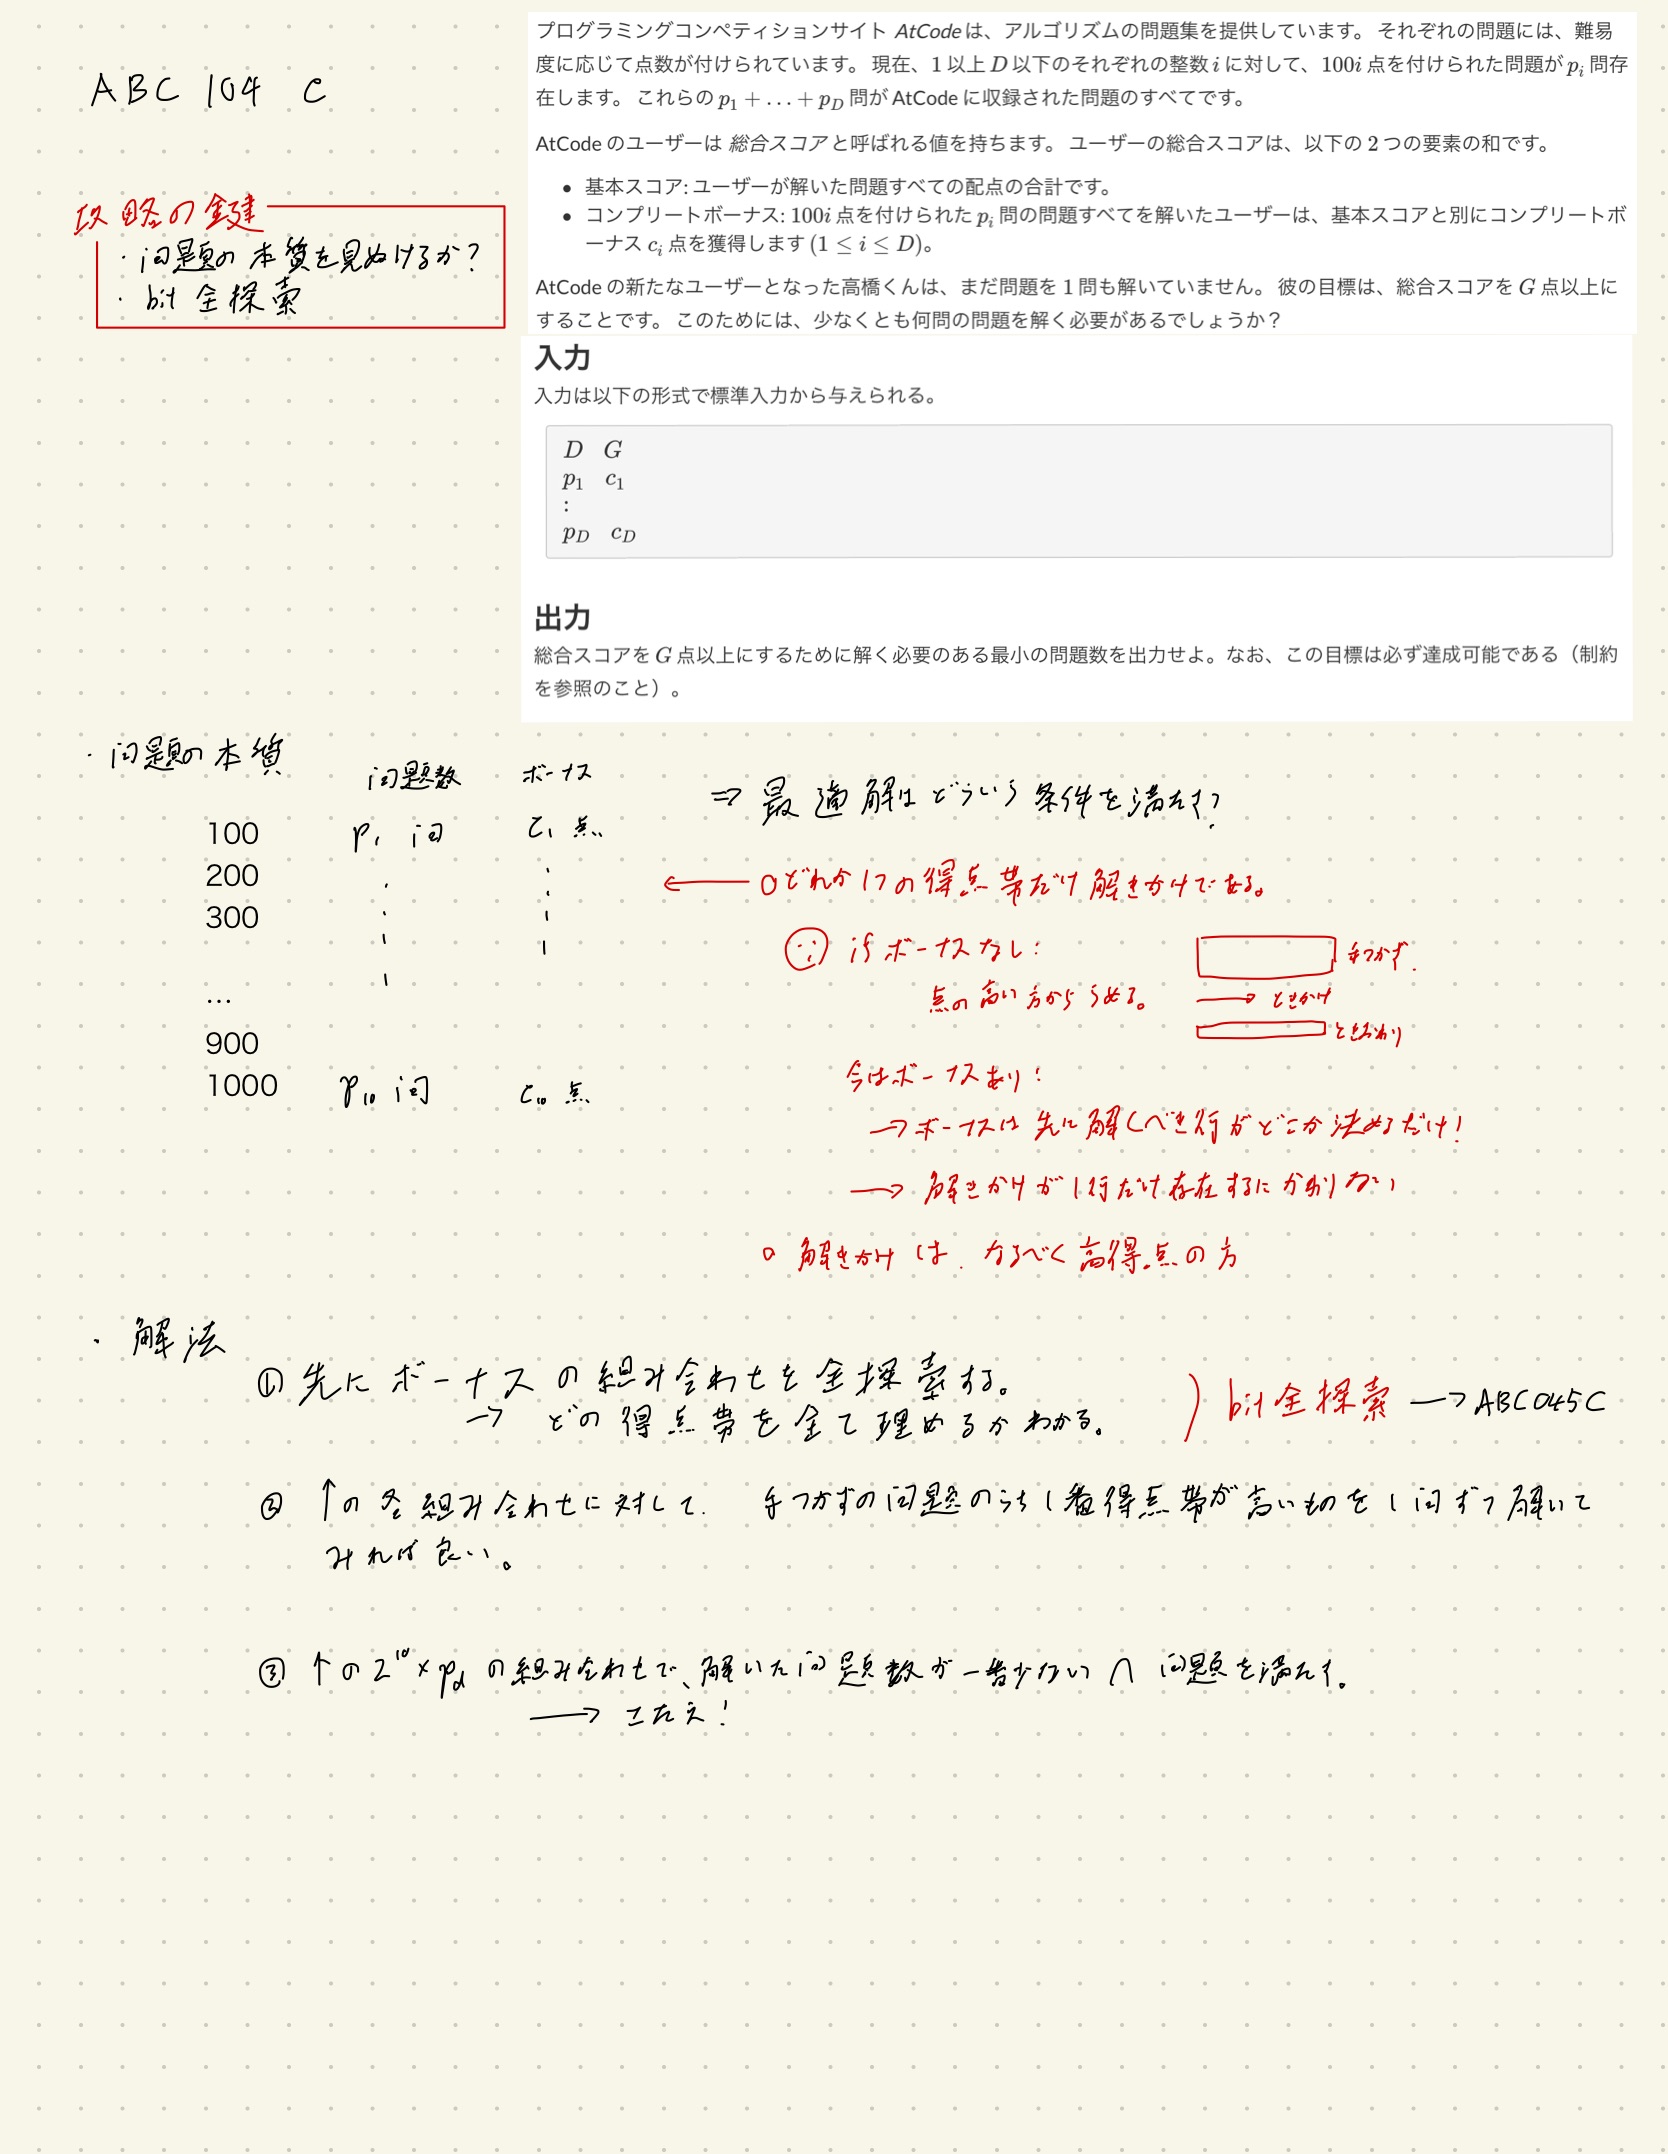 ABC 104 C
プログラミングコンペティションサイト AtCode は、アルゴリズムの問題集を提供しています。 それぞれの問題には、難易
度に応じて点数が付けられています。 現在、1 以上 D 以下のそれぞれの整数 i に対して、100i 点を付けられた問題が p_i 問存
在します。 これらの p_1 + … + p_D 問が AtCode に収録された問題のすべてです。
AtCode のユーザーは 総合スコア と呼ばれる値を持ちます。 ユーザーの総合スコアは、以下の 2 つの要素の和です。
• 基本スコア: ユーザーが解いた問題すべての配点の合計です。
• コンプリートボーナス: 100i 点を付けられた p_i 問の問題すべてを解いたユーザーは、基本スコアと別にコンプリートボ
ーナス c_i 点を獲得します (1 ≤ i ≤ D)。
AtCode の新たなユーザーとなった高橋くんは、まだ問題を 1 問も解いていません。 彼の目標は、総合スコアを G 点以上に
することです。 このためには、少なくとも何問の問題を解く必要があるでしょうか？
攻略の鍵
・問題の本質を見ぬけるか?
・bit 全探索
入力
入力は以下の形式で標準入力から与えられる。
D G
p_1 c_1
:
p_D c_D
出力
総合スコアを G 点以上にするために解く必要のある最小の問題数を出力せよ。なお、この目標は必ず達成可能である（制約
を参照のこと）。
・問題の本質
問題数 ボーナス
100 p_1 問 c_1 点
200
300
...
900
1000 p_10 問 c_10 点
⇒ 最適解はどういう条件を満たす?
← ○どれか1つの得点帯だけ解きかけである。
if ボーナスなし:
点の高い方からうめる。
手つかず.
→ ときかけ
ときおわり
今はボーナスあり!
→ボーナスは先に解くべき行がどこか決めるだけ!
→ 解きかけが1行だけ存在するにかわりない
○ 解きかけは、なるべく高得点の方
・解法
① 先にボーナスの組み合わせを全探索する。
→ どの得点帯を全て埋めるかわかる。
) bit全探索 → ABC045C
② ↑の各組み合わせに対して、手つかずの問題のうち1番得点帯が高いものを1問ずつ解いて
みれば良い。
③ ↑の2^10×p_d の組み合わせで、解いた問題数が一番少ない ∩ 問題を満たす。
→ こたえ!